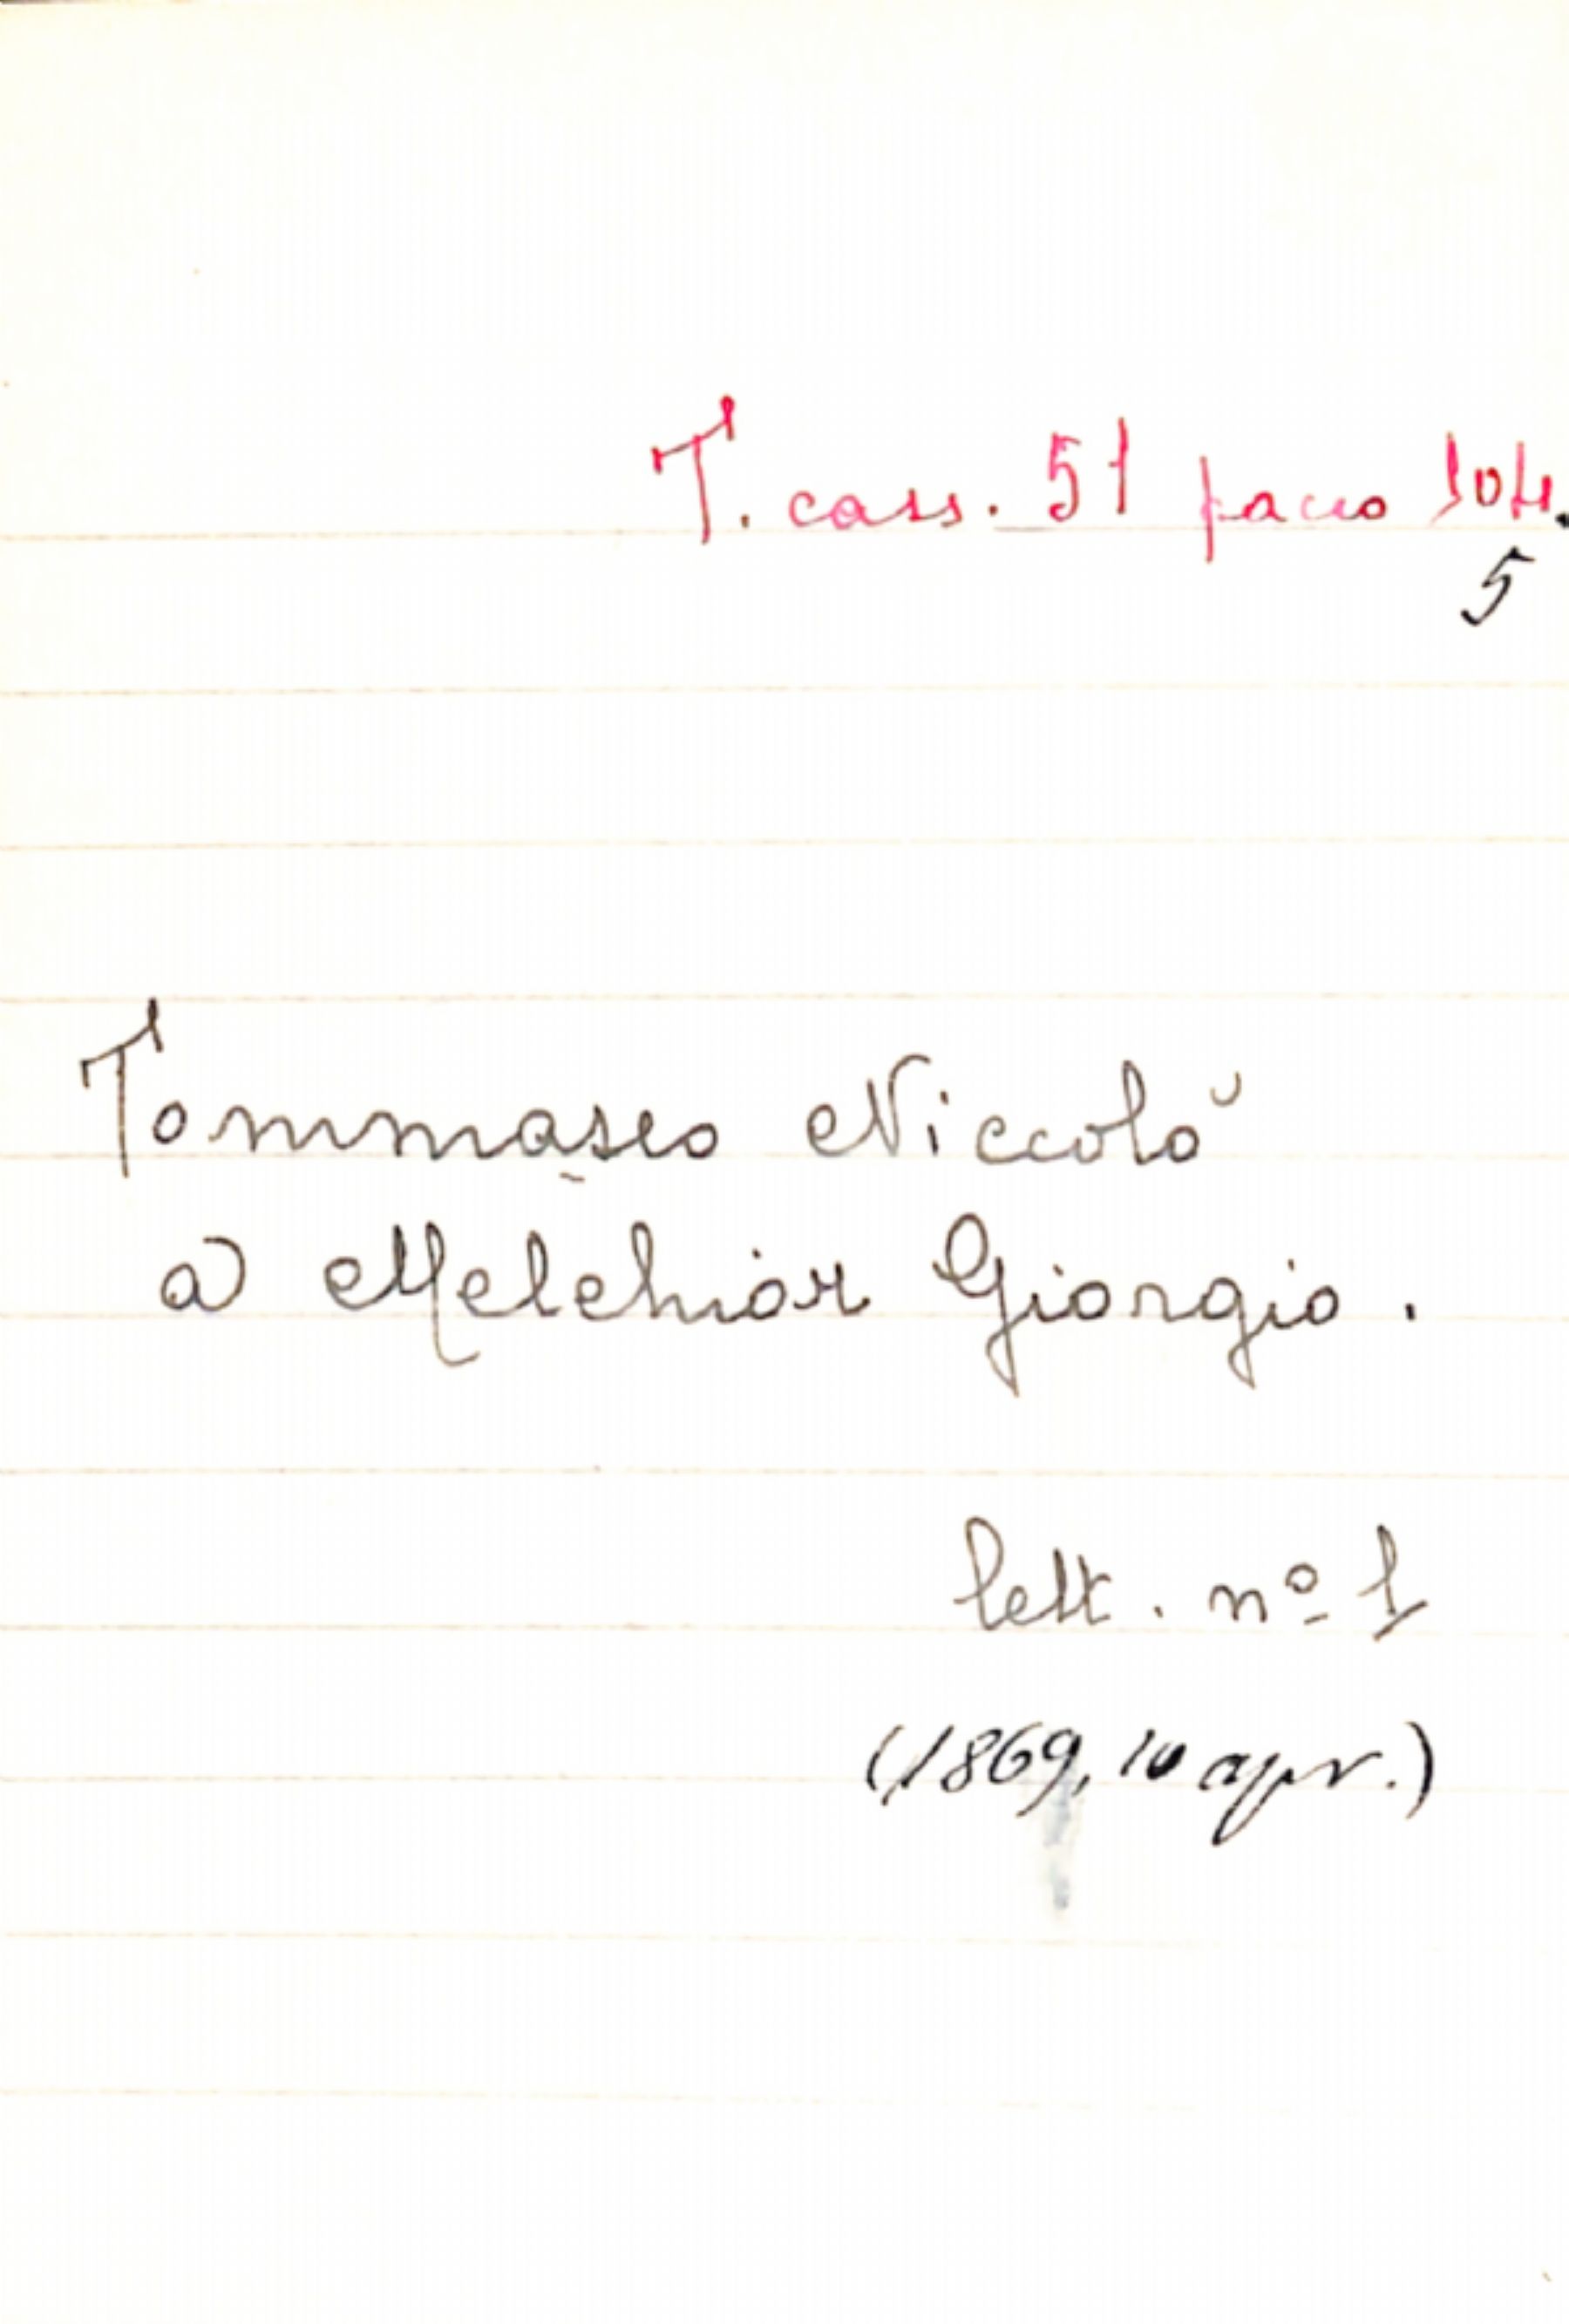 T. cass. 51 pacco 104.
5
Tommaseo Niccolò
a Melchior Giorgio.
lett. nº 1
(1869, 10 apr.)